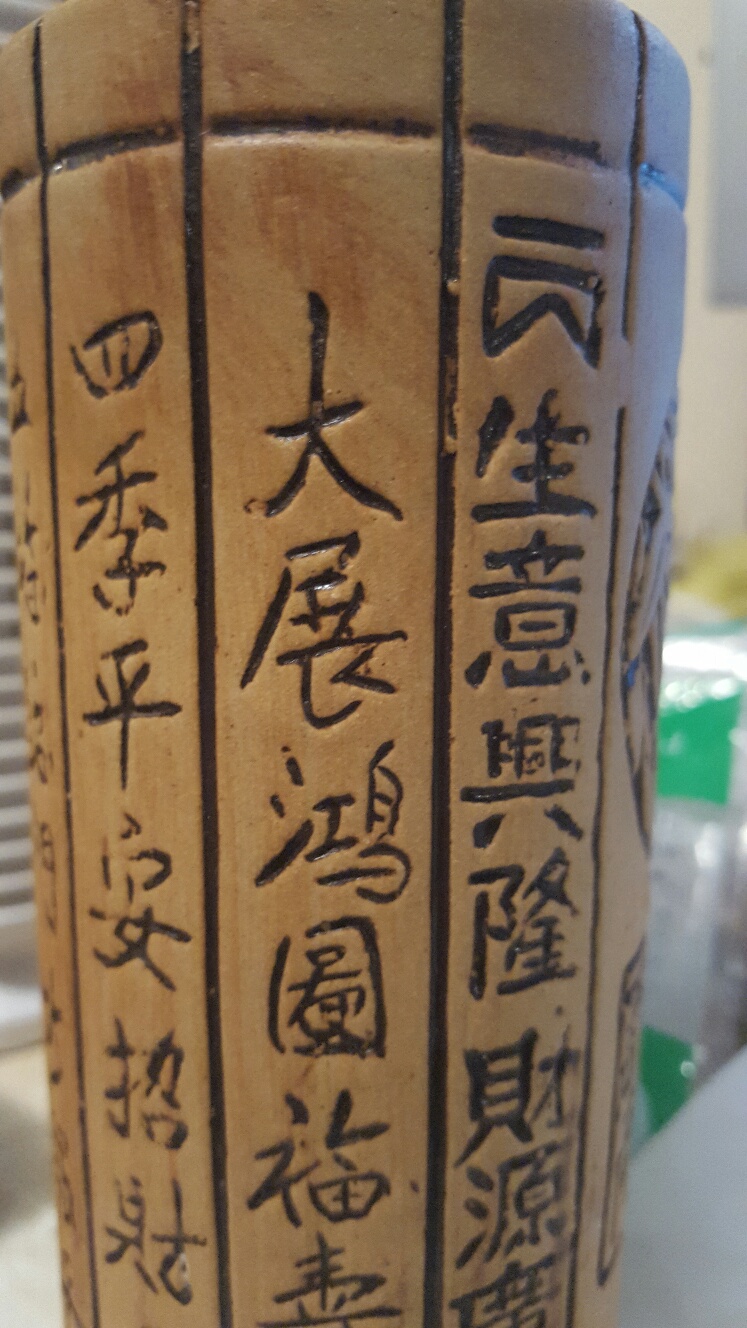 生意興隆財源廣
大展鴻圖福壽
四季平安招財